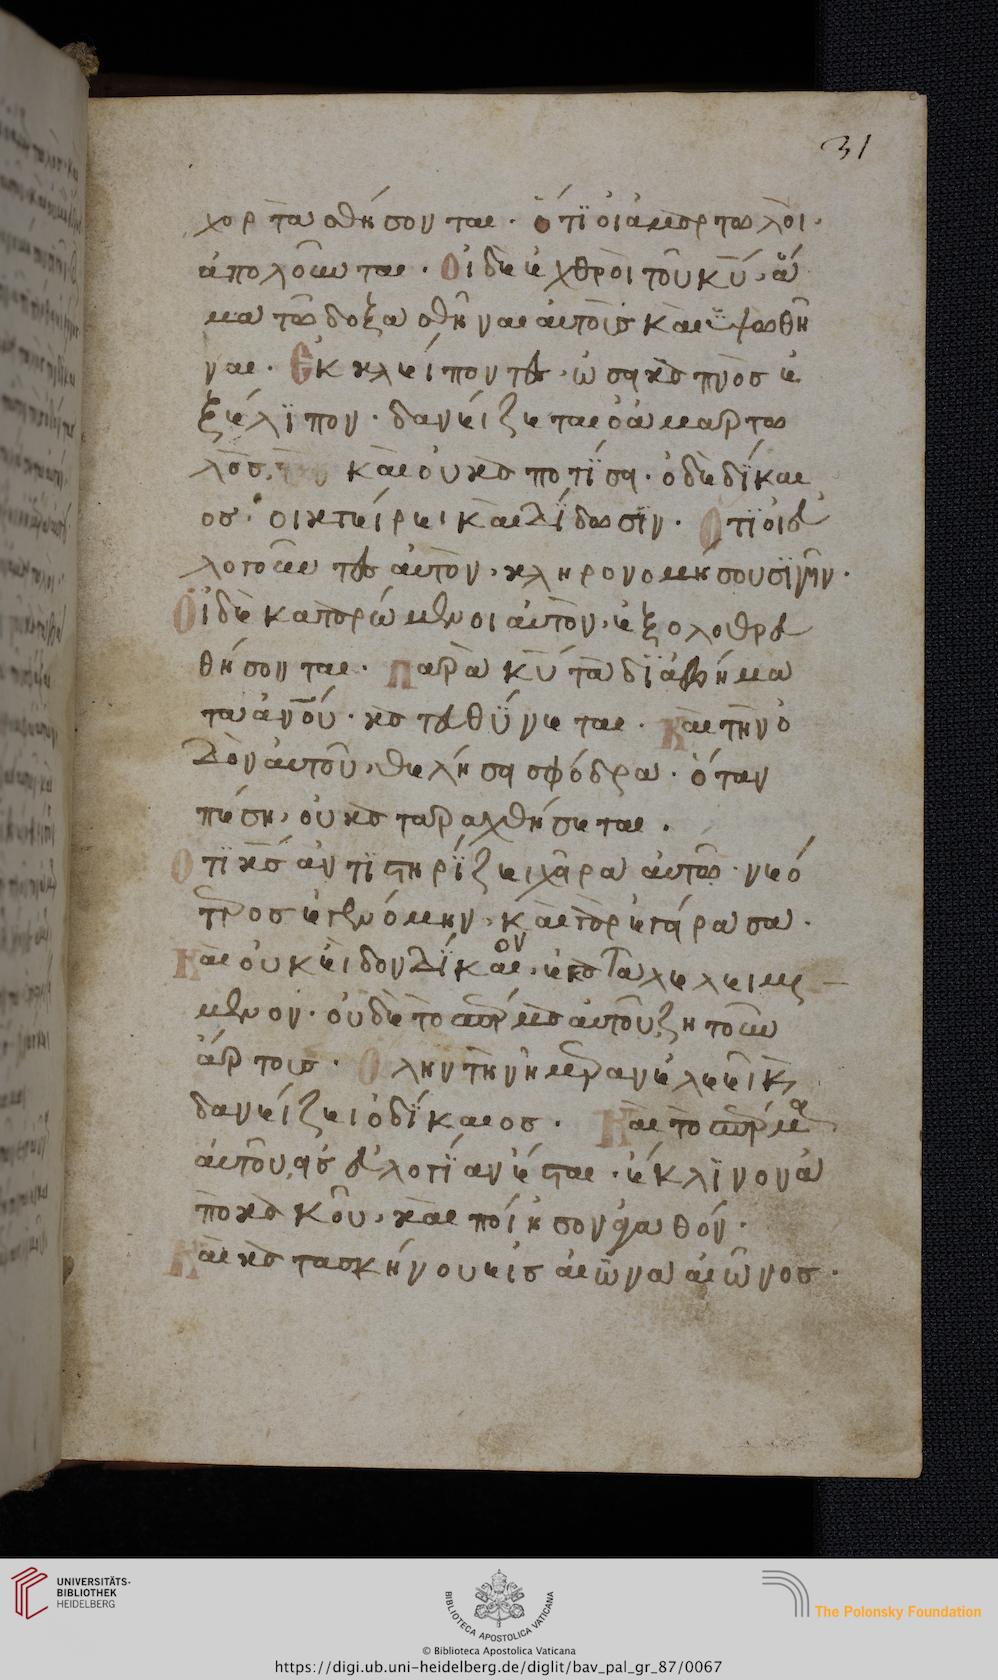 31
χορτασθήσονται· ὅτι οἱ ἁμαρτωλοὶ·
ἀπολοῦνται· Οἱ δὲ ἐχθροὶ τοῦ κυ, ἅ
μα τῶ δοξασθῆναι αὐτοὺς καὶ ὑψωθῆ
ναι· Ἐκλείποντες, ὡσεὶ καπνὸσ ἐ
ξέλιπον· δανείζεται ὁ ἁμαρτω
λὸσ, καὶ οὐκ ἀποτίσει· ὁ δὲ δίκαι
οσ· οἰκτείρει καὶ δίδωσιν· Ὅτι οἱ εὐ
λογοῦντες αὐτὸν, κληρονομήσουσι γῆν·
Οἱ δὲ καταρώμενοι αὐτὸν, ἐξολοθρευ
θήσονται· Παρὰ κυ τὰ διαβήμα
τα ἀνου· κατευθύνεται· Καὶ τὴν ὁ
δὸν αὐτοῦ, θελήσει σφόδρα· ὅταν
πέση, οὐ καταραχθήσεται.
Ὅτι κσ ἀντιστηρίζει χεῖρα αὐτοῦ· νεώ
τεροσ ἐγενόμην, καὶ γὰρ ἐγήρασα·
Καὶ οὐκ εἶδον δίκαιον, ἐγκαταλελειμ
μένον· οὐδὲ τὸ σπέρμα αὐτοῦ, ζητοῦν
ἄρτους· Ὅλην τὴν ἡμέραν ἐλεεῖ κ,
δανείζει ὁ δίκαιοσ· Καὶ τὸ σπέρμα
αὐτοῦ, εἰς εὐλογίαν ἔσται· ἔκκλινον ἀ
πὸ κακοῦ, καὶ ποίησον ἀγαθόν·
Καὶ κατασκήνου εἰς αἰῶνα αἰῶνοσ·
UNIVERSITÄTS-
BIBLIOTHEK
HEIDELBERG
BIBLIOTECA APOSTOLICA VATICANA
The Polonsky Foundation
© Biblioteca Apostolica Vaticana
https://digi.ub.uni-heidelberg.de/diglit/bav_pal_gr_87/0067